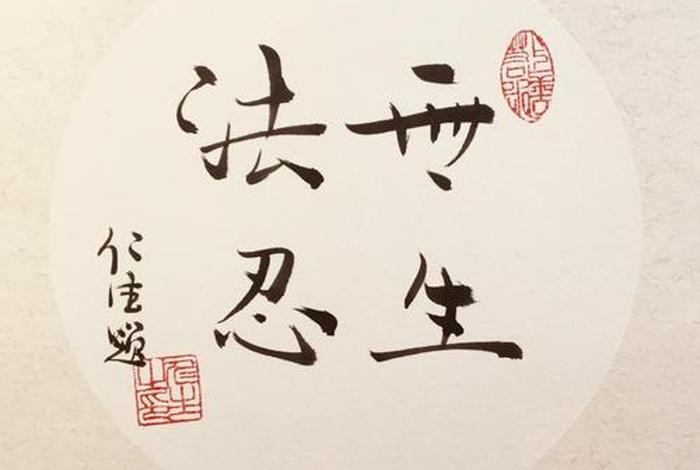 無生
法忍
仁佳題